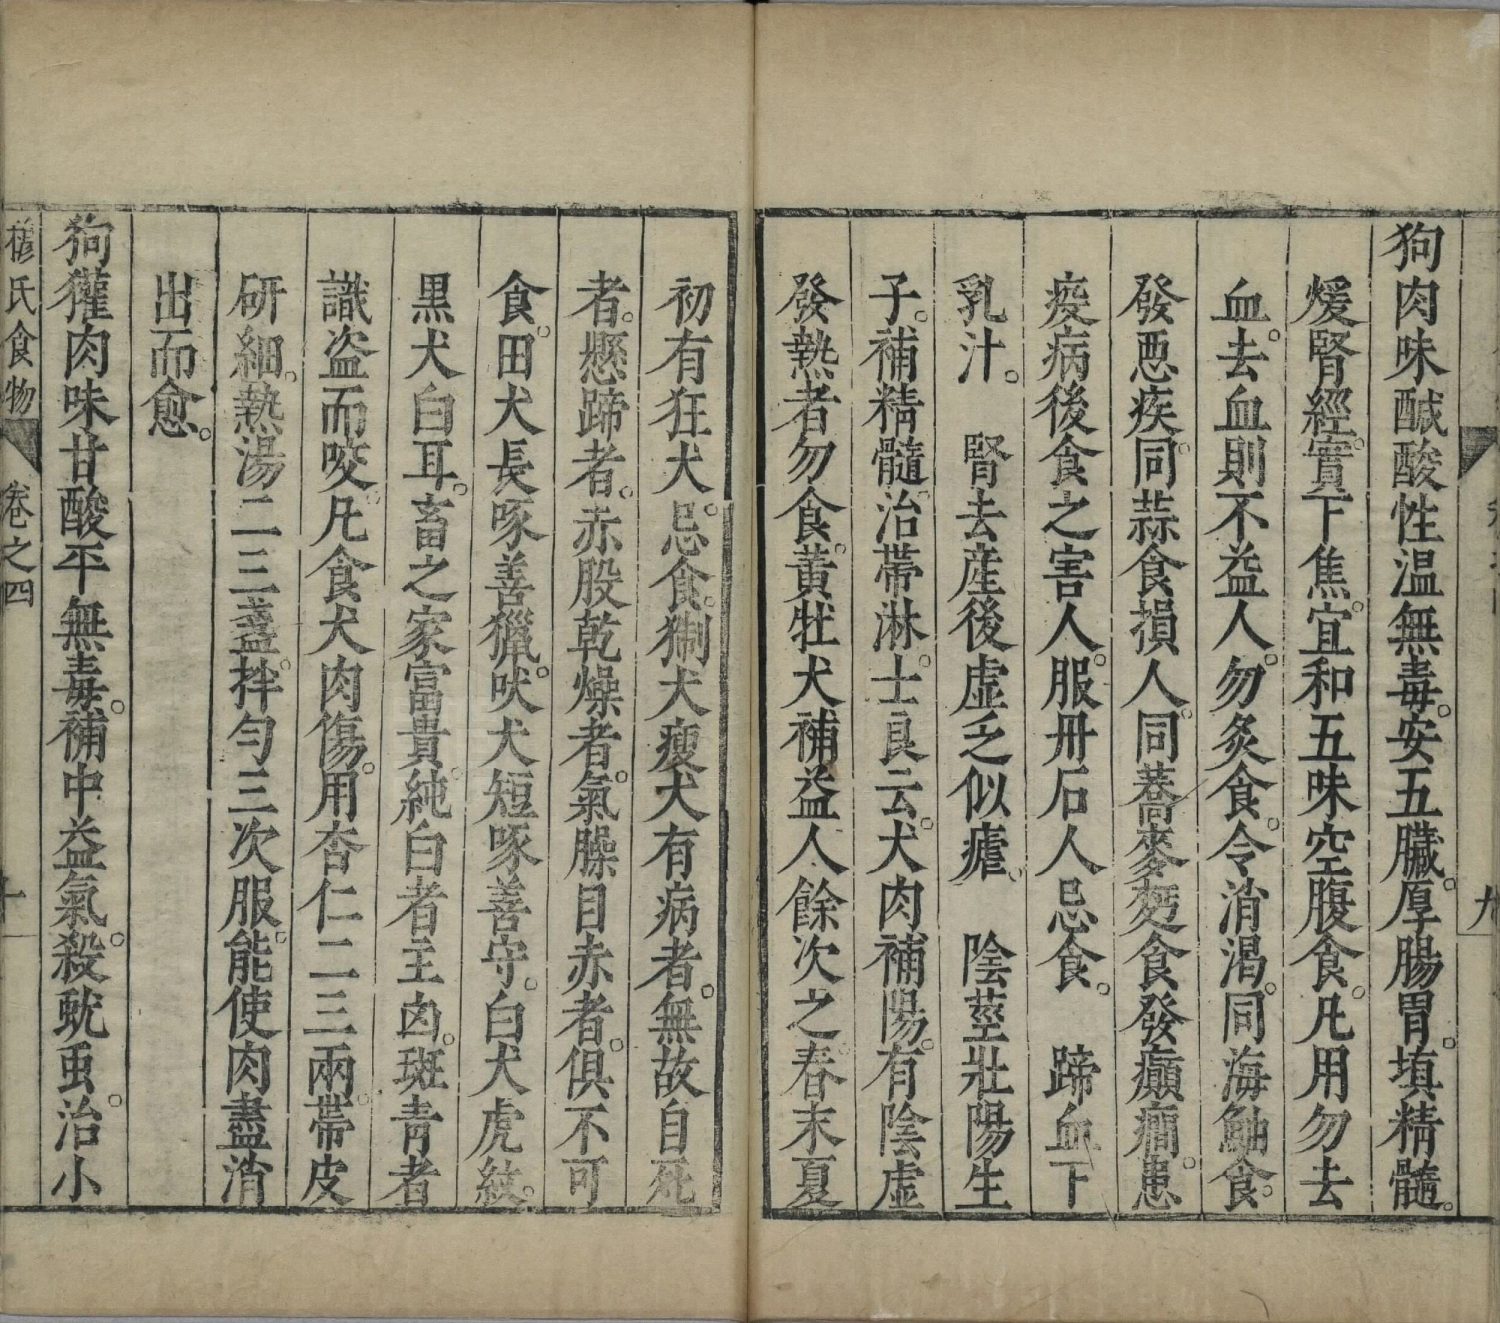 狗肉味鹹酸性温無毒安五臟厚腸胃填精髓
煖腎經實下焦宜和五味空腹食凡用勿去
血去血則不益人勿炙食令消渴同海鮋食
發惡疾同蒜食損人同蕎麥麪食發癲癎患
疫病後食之害人服丹石人忌食　蹄血下
乳汁　腎去産後虛乏似瘧　陰莖壯陽生
子補精髓治帶淋士良云犬肉補陽有陰虛
發熱者勿食黃牡犬補益人餘次之春末夏
初有狂犬忌食猘犬瘦犬有病者無故自死
者懸蹄者赤股乾燥者氣臊目赤者俱不可
食田犬長啄善獵吠犬短啄善守白犬虎紋
黑犬白耳畜之家富貴純白者主凶斑青者
識盜而咬凡食犬肉傷用杏仁二三兩帶皮
研細熱湯二三盞拌勻三次服能使肉盡消
出而愈
狗獾肉味甘酸平無毒補中益氣殺蚘虫治小
氏食物
卷之四